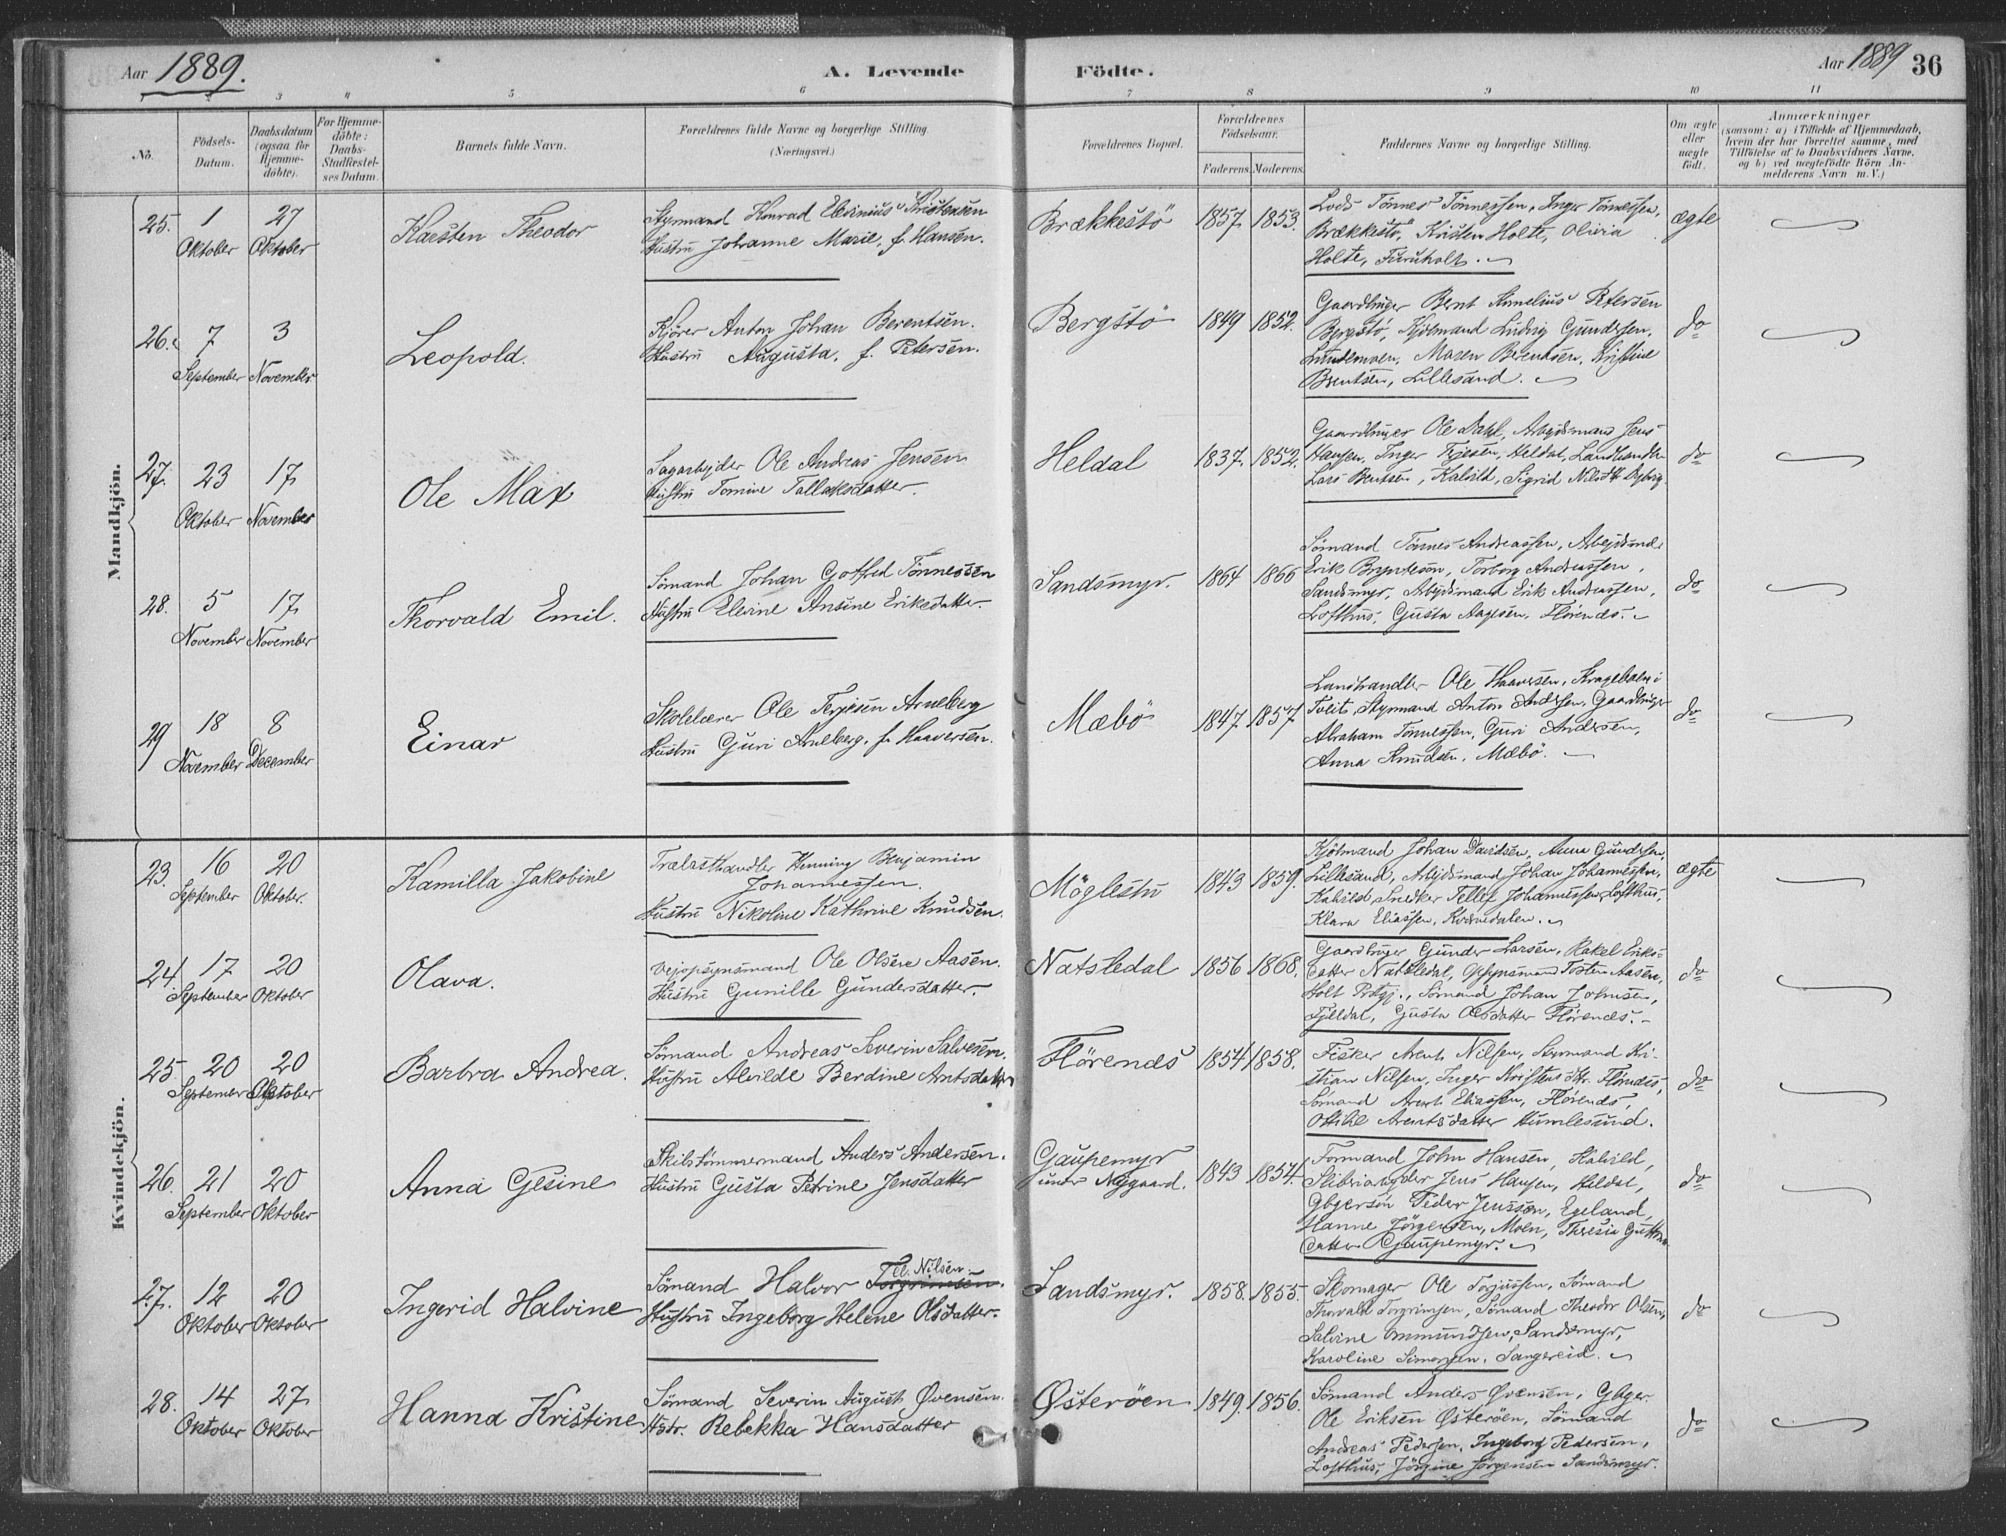 Aar 1889.
A. Levende
Födte.
Aar 1889
36
1 2 3 4 5 6 7 8 9 10 11
No.
Födsels-
Datum.
Daabsdatum
(ogsaa for
Hjemme-
döbte).
For Hjemme-
döbte:
Daabs-
Stadfæstel-
ses Datum.
Barnets fulde Navn.
Forældrenes fulde Navne og borgerlige Stilling.
(Næringsvei.)
Forældrenes Bopæl.
Forældrenes
Födselsaar.
Faderens. Moderens.
Faddernes Navne og borgerlige Stilling.
Om ægte
eller
uægte
födt.
Anmærkninger
(saasom: a) i Tilfælde af Hjemmedaab,
hvem der har forrettet samme, med
Tilföielse af to Daabsvidners Navne,
og b) ved uægtefödte Börn An-
melderens Navn m. V.)
Mandkjön.
25. 1 Oktober 27 Oktober
Karsten Theodor
Styrmand Konrad Elevinius Kristensen
Hustru Johanne Marie, f. Hansen.
Brækkestö 1857 1853.
Lods Tönnes Tönnessen, Inger Tönnessen,
Brækkestö, Kristen Holte, Olivia
Holte, Furuholt.
ægte
26. 7 September 3 November
Leopold.
Kjører Anton Johan Berentsen.
Hustru Augusta, f. Petersen.
Bergstö 1849 1852.
Gaardbruger Bernt Petersen
Bergstö, Ludvig Gundersen,
Maren Berentsen, Kristine
Berentsen, Lillesand.
do
27. 23 Oktober 17 November
Ole Max
Sagarbejder Ole Andreas Jensen
Hustru Tomine Tallaksdatter.
Heldal 1837. 1852.
Gaardbruger Ole Dahl, Arbejdsmand Jens
Hansen, Inger Heldal, Landhandler
Lars Berntsen, Kalvild, Sigrid
do
28. 5 November 17 November
Thorvald Emil.
Sömand Johan Gotfred Tönnessen
Hustru Elevine Ansine Eriksdatter.
Sandsmyr. 1864 1866
Sömand Tönnes Andreassen, Arbejdsmd.
Erik Bryntesön, Torborg Andreassen,
Sandsmyr, Arbejdsmand Erik Andreassen,
Lofthus, Gusta Aagesen, Flörenes.
do
29 18 November 8 December
Einar
Skolelærer Ole Terjesen Arneberg
Hustru Guri Arneberg, f. Haaversen.
Mæbö 1847. 1857
Landhandler Ole Haaversen, i
Tveit, Styrmand Anton Andersen, Gaardbruger
Abraham Tönnessen, Guri Andersen,
Anna Knudsen, Mæbö.
do
Kvindekjön.
23. 16 September 20 Oktober.
Kamilla Jakobine
Trælasthandler Henning Benjamin
Johannessen.
Hustru Nikoline Kathrine Knudsen.
Möglestu 1843 1859.
Kjöbmand Johan Davidsen, Anna Gundersen,
Lillesand, Arbejdsmand Johan Johannessen,
Kalvild, Snedker Tellef Johannessen, Lofthus,
Klara Eliassen, Kvernedalen.
ægte
24. 17 September 20 Oktober
Olava.
Vejopsynsmand Ole Olsen Aasen.
Hustru Gunille Gundersdatter.
Natsledal 1856 1868.
Gaardbruger Gunder Larsen, Rakel Eriks-
datter Natsledal, Opsynsmand Tosten Aasen,
Holt Prstgj., Sömand Johan Johnsen,
Gusta Olsdatter Flörenes.
do
25 20 September 20 Oktober
Barbra Andrea.
Sömand Andreas Severin Salvesen.
Hustru Alvilde Berdine Arntsdatter
Flörenes 1854 1858.
Fisker Arent Nilsen, Styrmand Kri-
stian Nilsen, Inger Flörenes,
Sömand Arent Eliassen, Flörenes,
Ottilie Arentsdatter Humlesund.
do
26. 21 September 20 Oktober
Anna Gesine
Skibstömmermand Anders Andersen.
Hustru Gusta Petrine Jensdatter
Gaupemyr
under Nygaard. 1843 1854
Formand John Hansen, Kalvild,
Jens Hansen, Heldal,
Peder Jenssön, Egeland,
Hanne Jörgensen, Moen, Theresia
datter Gaupemyr.
do
27. 12 Oktober 20 Oktober
Ingerid Halvine
Sömand Halvor Torgrimsen. el. Nilsen.
Hustru Ingeborg Helene Olsdatter.
Sandsmyr. 1858. 1855.
Skomager Ole Torjussen, Sömand
Thorvald Torgrimsen, Sömand Theodor Olsen,
Salvine Ommundsen, Sandsmyr,
Karoline Simonsen, Sangereid.
do
28. 14 Oktober 27 Oktober
Hanna Kristine
Sömand Severin August Øvensen.
Hstr. Rebekka Hansdatter
Østeröen 1849. 1856.
Sömand Anders Øvensen,
Ole Eriksen Østeröen, Sömand
Andreas Pedersen, Ingeborg Pedersen,
Lofthus, Jörgine Jörgensen Sandsmyr.
do